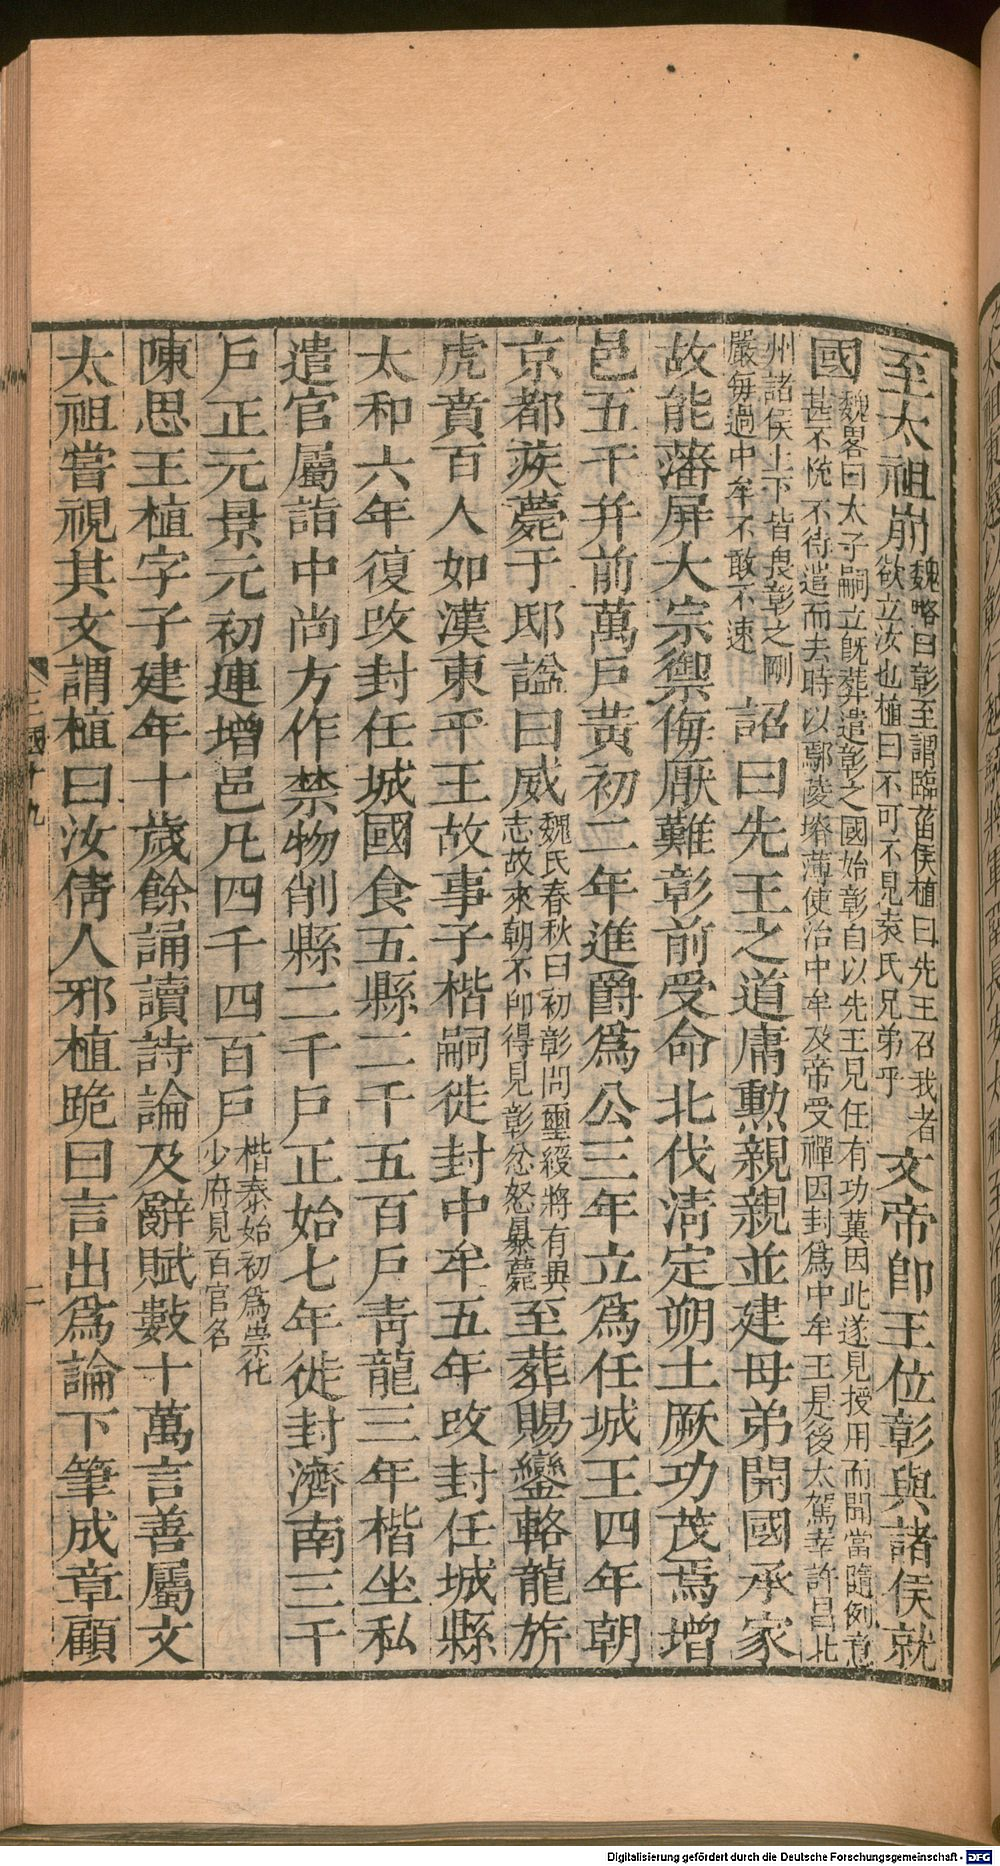 至太祖崩魏略曰彰至謂臨菑侯植曰先王召我者欲立汝也植曰不可不見袁氏兄弟乎文帝卽王位彰與諸侯就
國魏畧曰太子嗣立旣葬遣彰之國始彰自以先王見任有功冀因此遂見授用而聞當隨例意甚不恱不待遣而去時以鄢陵塉薄使治中牟及帝受禪因封爲中牟王是後大駕幸許昌北
州諸侯上下皆畏彰之剛嚴每過中牟不敢不速詔曰先王之道庸勳親親並建母弟開國承家
故能藩屏大宗禦侮厭難彰前受命北伐淸定朔土厥功茂焉增
邑五千幷前萬戶黃初二年進爵爲公三年立爲任城王四年朝
京都疾薨于邸諡曰威魏氏春秋曰初彰問璽綬將有異志故來朝不卽得見彰忿怒暴薨至葬賜鑾輅龍旂
虎賁百人如漢東平王故事子楷嗣徙封中牟五年改封任城縣
太和六年復改封任城國食五縣二千五百戶靑龍三年楷坐私
遣官屬詣中尚方作禁物削縣二千戶正始七年徙封濟南三千
戶正元景元初連增邑凡四千四百戶楷泰始初爲崇化少府見百官名
陳思王植字子建年十歲餘誦讀詩論及辭賦數十萬言善屬文
太祖嘗視其文謂植曰汝倩人邪植跪曰言出爲論下筆成章顧
三國十九
二
Digitalisierung gefördert durch die Deutsche Forschungsgemeinschaft - DFG